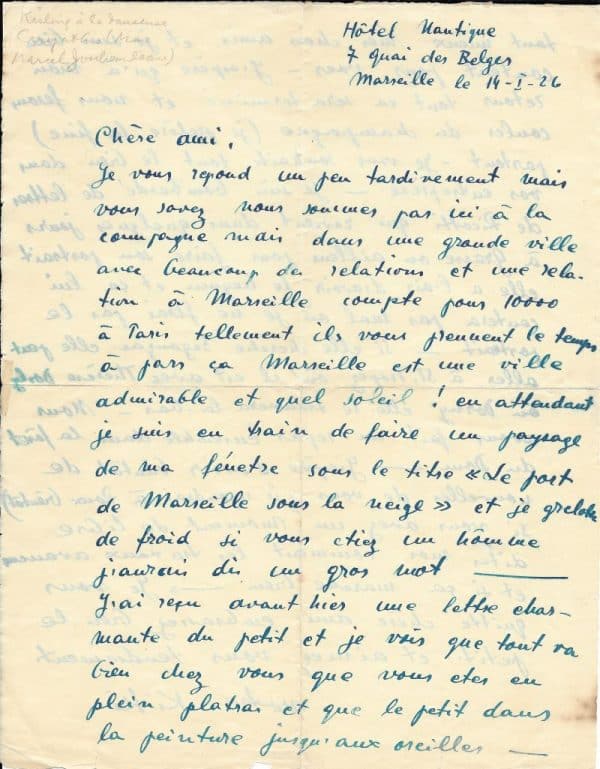 Kisling à la danseuse
Caryathis (Mme
Marcel Jouhandeau)
Hôtel Nautique
7 Quai des Belges
Marseille le 14-I-26
Chère ami,
Je vous repond un peu tardivement mais
vous savez nous sommes pas ici à la
compagne mais dans une grande ville
avec beaucoup de relations et une rela-
tion à Marseille compte pour 10000
à Paris tellement ils vous prennent le temps
à pars ça Marseille est une ville
admirable et quel soleil ! en attendant
je suis en train de faire un paysage
de ma fénetre sous le titre « Le port
de Marseille sous la neige » et je grelote
de froid si vous etiez un hômme
j'aurais dis un gros mot ———
J'ai reçu avant hier une lettre char-
mante du petit et je vois que tout va
bien chez vous que vous etes en
plein platras et que le petit dans
la peinture jusqu'aux oreilles —